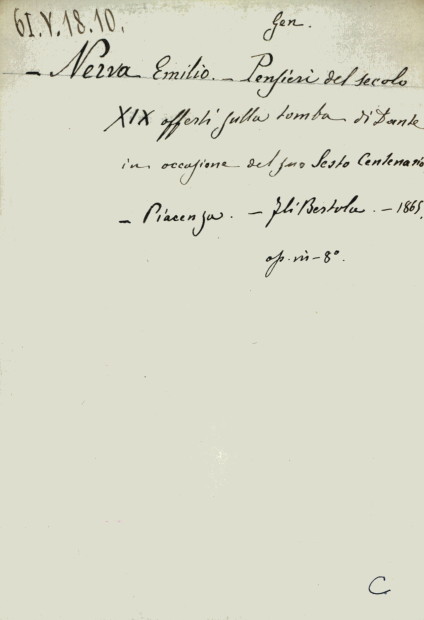 61.V.18.10.
Gen.
- Nerva Emilio. - Pensieri del secolo
XIX offerti sulla tomba di Dante
in occasione del suo Sesto Centenario
- Piacenza. - Fli Bertola. - 1865.
op. in-8º.
C